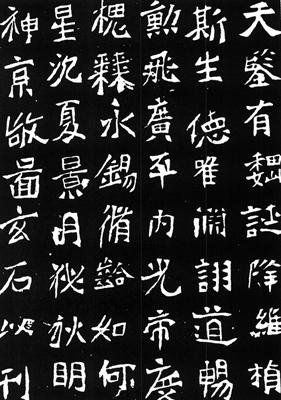 天鑒有魏誕降維楨
斯生德唯淵詡道暢
勳飛廣平內光帝度
槐永錫脩齡如何
星沉夏景月秘秋明
神京啚玄石以刊